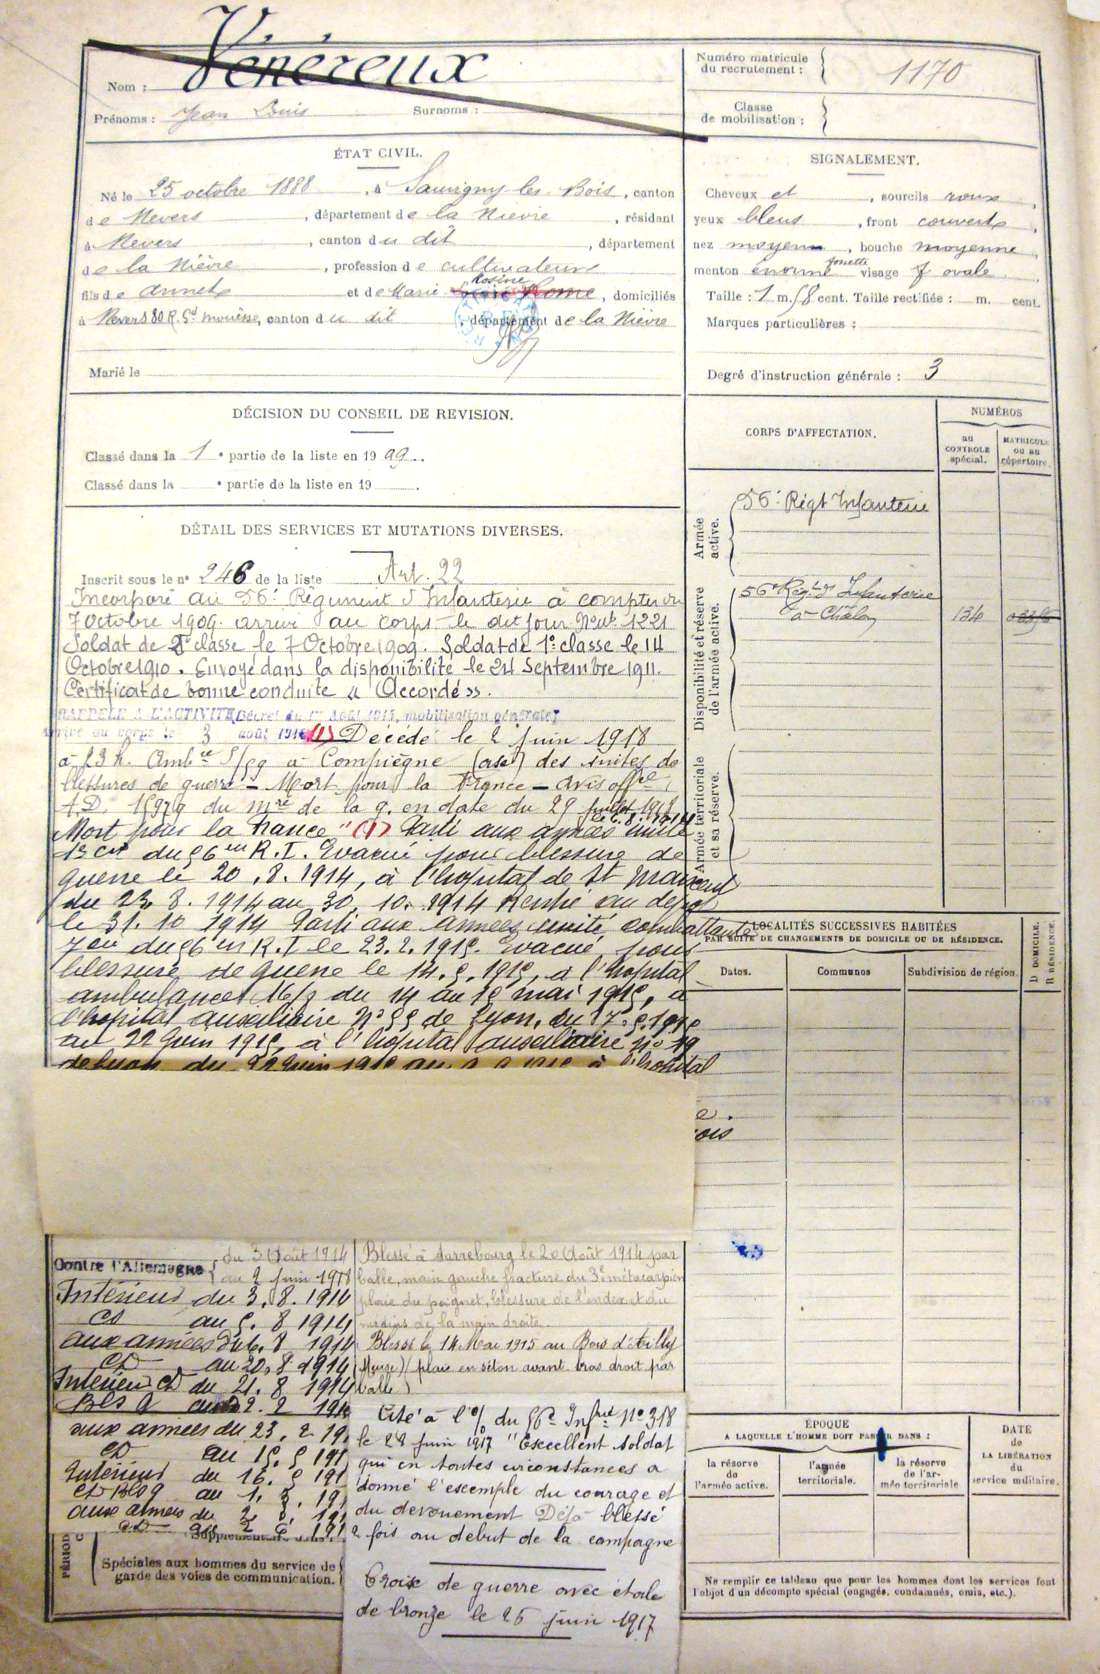 Nom : Vénéreux
Prénoms : Jean Louis Surnoms :
Numéro matricule du recrutement : 1170
Classe de mobilisation :
ÉTAT CIVIL.
Né le 25 octobre 1888, à Sauvigny-les-Bois, canton
de Nevers, département de la Nièvre, résidant
à Nevers, canton du dit, département
de la Nièvre, profession de cultivateur
fils de Annet et de Marie Rosine, domiciliés
à Nevers 80 R. Gd mouësse, canton du dit, département de la Nièvre
Marié le
SIGNALEMENT.
Cheveux et, sourcils roux,
yeux bleus, front couvert,
nez moyen, bouche moyenne,
menton énorme fouette visage f ovale.
Taille : 1 m. 58 cent. Taille rectifiée : m. cent.
Marques particulières :
Degré d'instruction générale : 3
DÉCISION DU CONSEIL DE REVISION.
Classé dans la 1e partie de la liste en 1909.
Classé dans la e partie de la liste en 19 .
DÉTAIL DES SERVICES ET MUTATIONS DIVERSES.
Inscrit sous le n° 246 de la liste Art. 22
Incorporé au 56e Régiment d'Infanterie à compter du
7 octobre 1909. arrivé au corps le dit jour. N° Mle 1221
Soldat de 2e classe le 7 Octobre 1909. Soldat de 1e classe le 14
Octobre 1910. Envoyé dans la disponibilité le 24 Septembre 1911.
Certificat de bonne conduite « Accordé ».
RAPPELÉ A L'ACTIVITÉ (Décret du 1er Août 1914, mobilisation générale)
Arrivé au corps le 3 août 1914 (1) Décédé le 2 juin 1918
à 23 h. Ambce 5/59 à Compiègne (oise) des suites de
blessures de guerre - Mort pour la France - avis offel
f. D. 15979 du mre de la g. en date du 29 juillet 1918
Mort pour la France" (1) Parti aux armées unité le 6.8.1914
13 Cie du 56eme R.I. Evacué pour blessure de
guerre le 20.8.1914, à l'hopital de St Maixent
du 23.8.1914 au 30.10.1914 Rentré au dépot
le 31.10 1914 Parti aux armées unité combattante
7 Cie du 56em R.I le 23.2.1915. Evacué pour
blessure de guerre le 14.5.1915, à l'hopital
ambulance 16/7 du 14 au 15 mai 1915, à
l'hopital auxiliaire N° 55 de Lyon, du 17.5.1915
au 22 Juin 1915, à l'hôpital auxiliaire N° 19
de Lyon du 22 Juin 1915 au à l'hopital
CORPS D'AFFECTATION.
NUMÉROS
au CONTROLE spécial.
MATRICULE OU AU répertoire.
Armée active.
56e Régt Infanterie
Disponibilité et réserve de l'armée active.
56e Régt d'Infanterie
à Châlon 134
Armée territoriale et sa réserve.
LOCALITÉS SUCCESSIVES HABITÉES
PAR SUITE DE CHANGEMENTS DE DOMICILE OU DE RÉSIDENCE.
Dates. Communes Subdivision de région. D DOMICILE. R RÉSIDENCE.
Contre l'Allemagne { du 3 Août 1914
au 2 Juin 1918
Intérieur du 3.8.1914
CD au 5.8 1914
aux armées du 6.8 1914
CD au 20.8 1914
Intérieur CD du 21.8 1914
Bls g 2.2 191
aux armées du 23.2.19
CD au 15.5 191
Intérieur du 16.5 191
CD Bls g au 1.
aux armées du 2
CD au 2 6. 191
Blessé à Sarrebourg le 20 Août 1914 par
balle, main gauche fracture du 3e métacarpien
plaie du poignet, blessure de l'index et du
médius de la main droite.
Blessé le 14 Mai 1915 au Bois d'Ailly
(Meuse) (plaie en séton avant bras droit par
balle)
Cité à l'o/ du 56e Infrie N° 318
le 28 juin 1917 "Excellent soldat
qui en toutes circonstances a
donné l'exemple du courage et
du dévouement Déjà blessé
2 fois au début de la campagne
Croix de guerre avec étoile
de bronze le 26 juin 1917
PÉRIOD
Spéciales aux hommes du service de
garde des voies de communication.
ÉPOQUE
A LAQUELLE L'HOMME DOIT PASSER DANS :
la réserve de l'armée active.
l'armée territoriale.
la réserve de l'armée territoriale
DATE de LA LIBÉRATION du service militaire.
Ne remplir ce tableau que pour les hommes dont les services font
l'objet d'un décompte spécial (engagés, condamnés, omis, etc.).